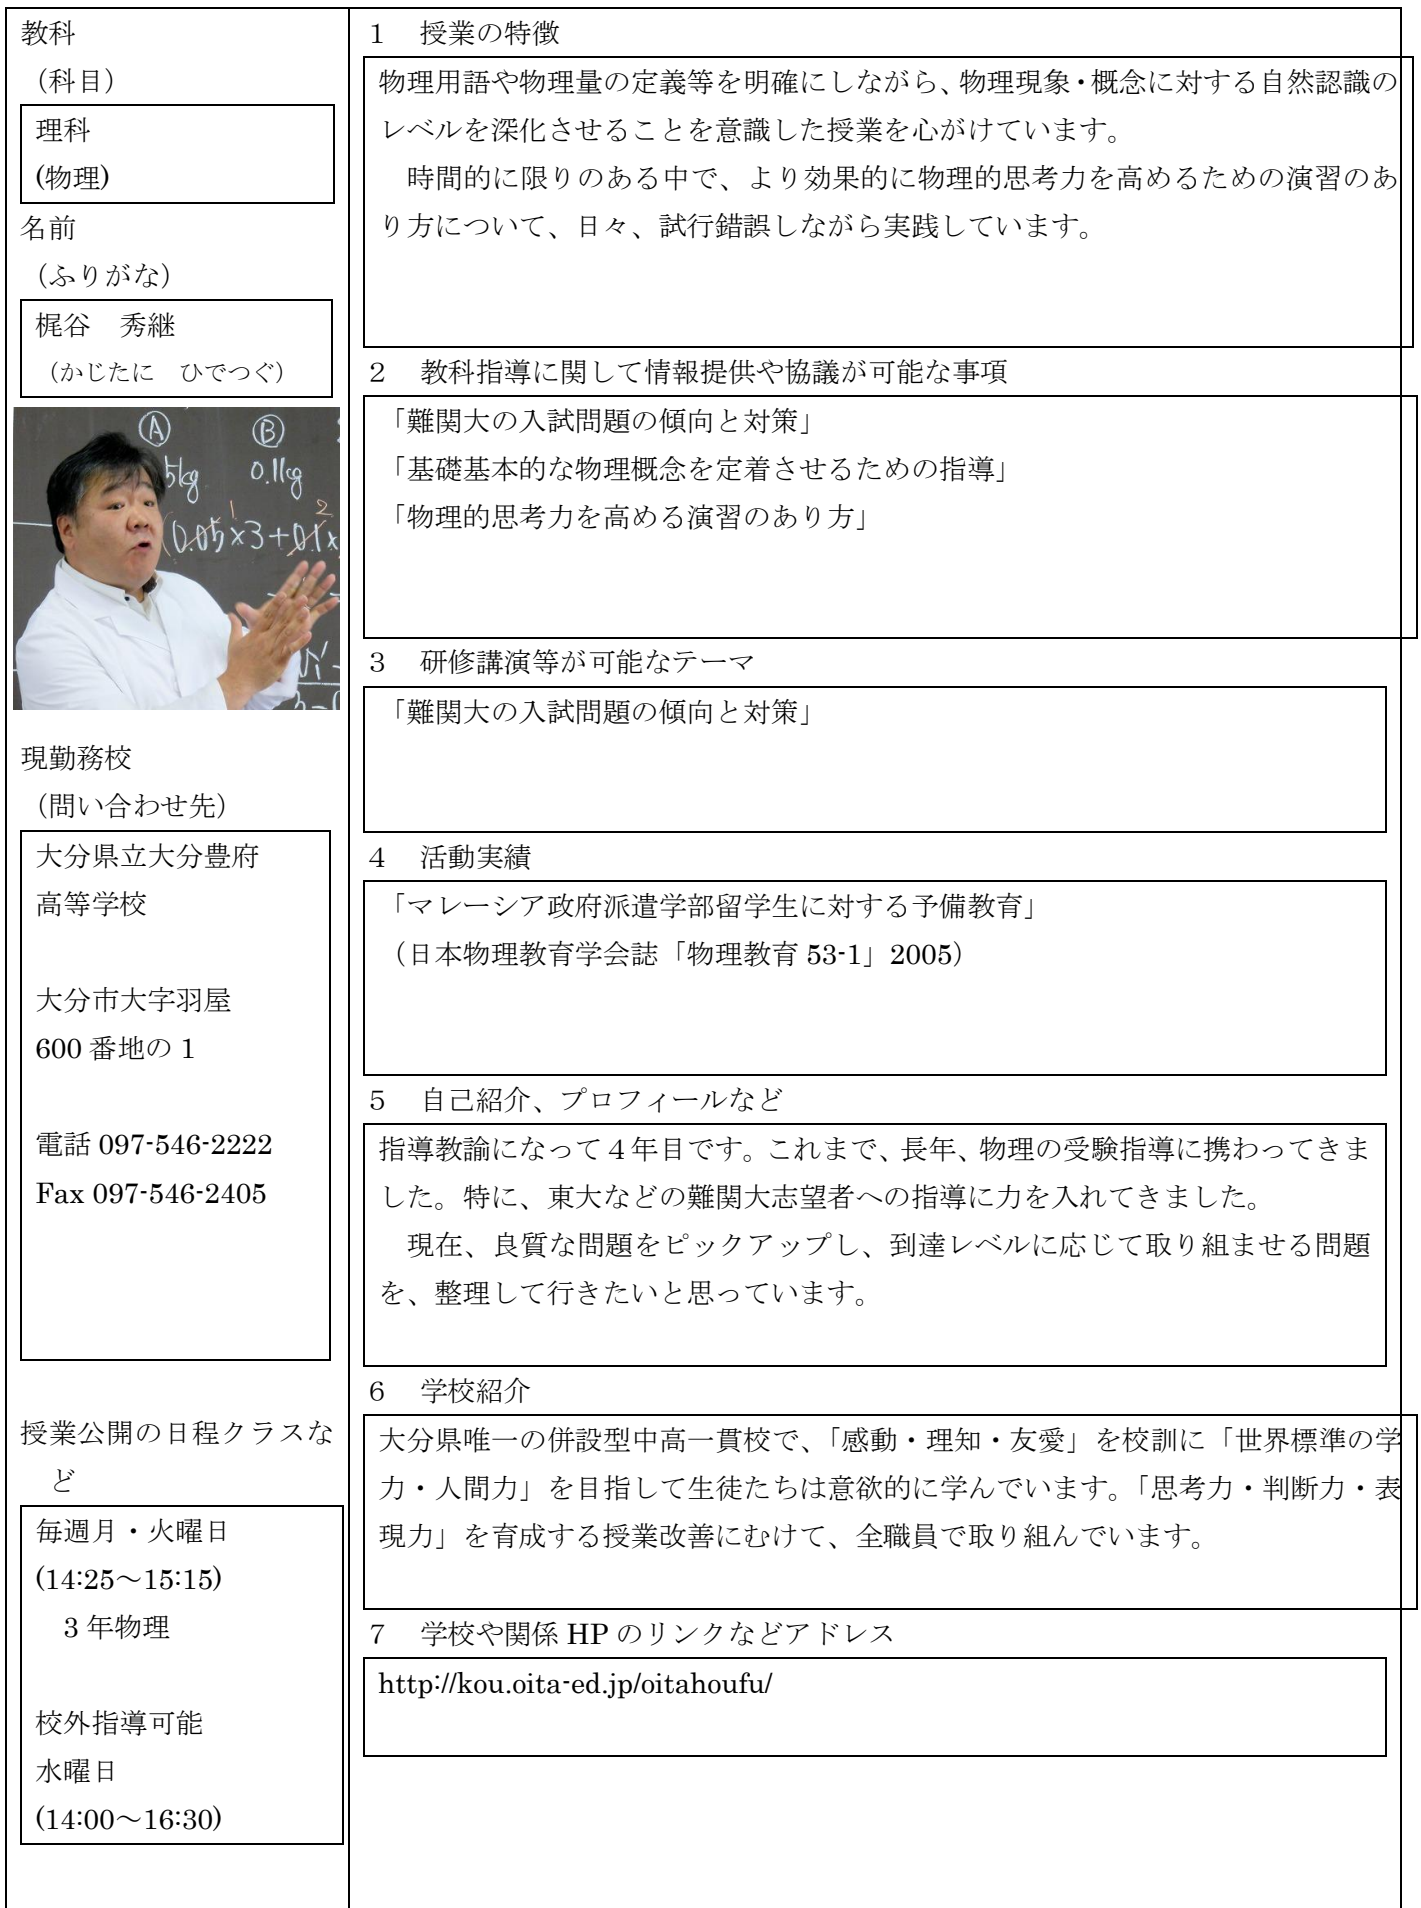 教科
（科目）
理科
(物理)
名前
（ふりがな）
梶谷　秀継
（かじたに　ひでつぐ）
Ⓐ Ⓑ
5kg 0.1kg
1 2
(0.05×3+0.1×
現勤務校
（問い合わせ先）
大分県立大分豊府
高等学校
大分市大字羽屋
600 番地の 1
電話 097-546-2222
Fax 097-546-2405
授業公開の日程クラスな
ど
毎週月・火曜日
(14:25～15:15)
３年物理
校外指導可能
水曜日
(14:00～16:30)
１　授業の特徴
物理用語や物理量の定義等を明確にしながら、物理現象・概念に対する自然認識の
レベルを深化させることを意識した授業を心がけています。
　時間的に限りのある中で、より効果的に物理的思考力を高めるための演習のあ
り方について、日々、試行錯誤しながら実践しています。
２　教科指導に関して情報提供や協議が可能な事項
「難関大の入試問題の傾向と対策」
「基礎基本的な物理概念を定着させるための指導」
「物理的思考力を高める演習のあり方」
３　研修講演等が可能なテーマ
「難関大の入試問題の傾向と対策」
４　活動実績
「マレーシア政府派遣学部留学生に対する予備教育」
（日本物理教育学会誌「物理教育 53-1」2005）
５　自己紹介、プロフィールなど
指導教諭になって４年目です。これまで、長年、物理の受験指導に携わってきま
した。特に、東大などの難関大志望者への指導に力を入れてきました。
　現在、良質な問題をピックアップし、到達レベルに応じて取り組ませる問題
を、整理して行きたいと思っています。
６　学校紹介
大分県唯一の併設型中高一貫校で、「感動・理知・友愛」を校訓に「世界標準の学
力・人間力」を目指して生徒たちは意欲的に学んでいます。「思考力・判断力・表
現力」を育成する授業改善にむけて、全職員で取り組んでいます。
７　学校や関係 HP のリンクなどアドレス
http://kou.oita-ed.jp/oitahoufu/